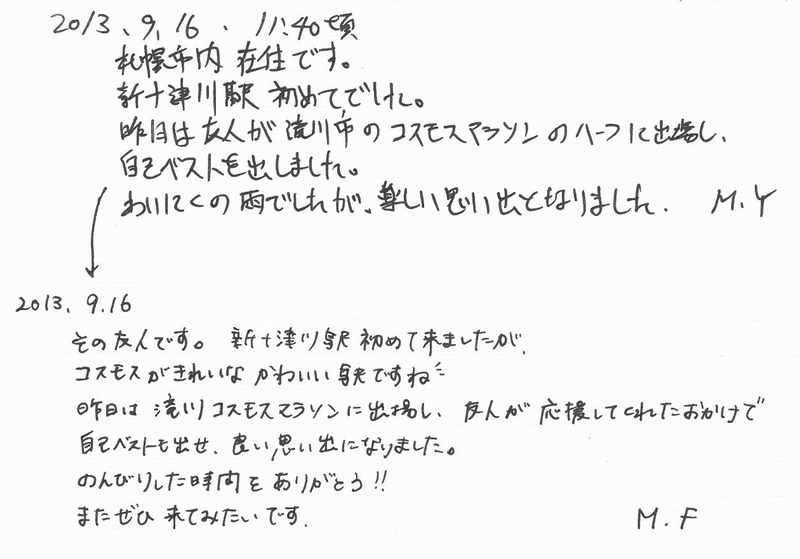 2013、9,16 、11:40頃
札幌市内 在住です。
新十津川駅 初めてでした。
昨日は友人が滝川市のコスモスマラソンのハーフに出場し、
自己ベストを出しました。
あいにくの雨でしたが、楽しい思い出となりました. M.Y
2013、9.16
その友人です。新十津川駅初めて来ましたが、
コスモスがきれいな かわいい駅ですね
昨日は滝川コスモスマラソンに出場し、友人が応援してくれたおかげで
自己ベストも出せ、良い思い出になりました。
のんびりした時間をありがとう!!
またぜひ来てみたいです.
M.F